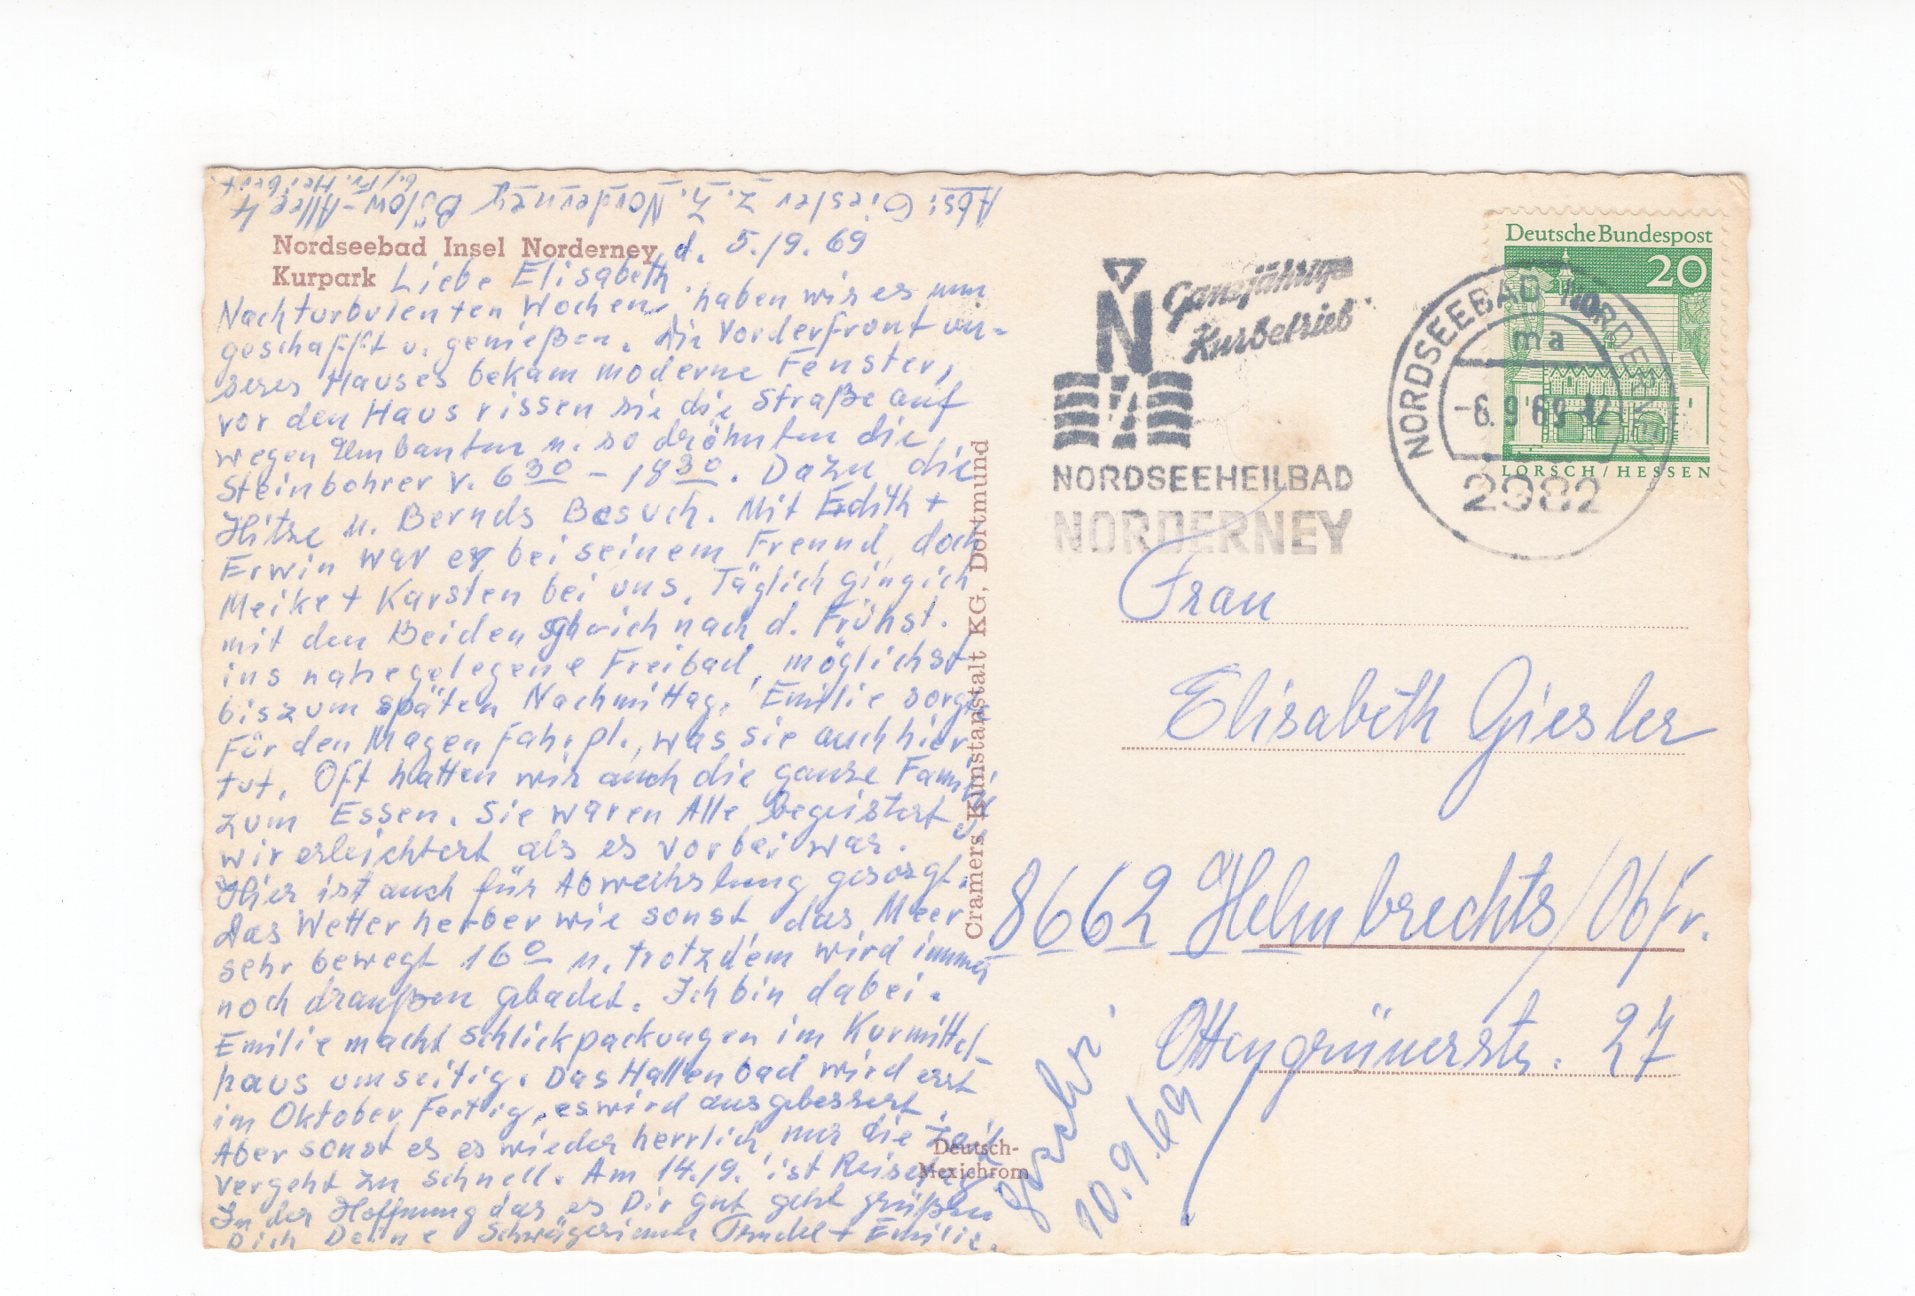 Abs: Giesler z. Z. Norderney Bülow-Allee 4
b/Fr. Herbert
Nordseebad Insel Norderney, d. 5./9. 69
Kurpark
Liebe Elisabeth
Nach turbulenten Wochen, haben wir es nun
geschafft u. genießen. Die Vorderfront un-
seres Hauses bekam moderne Fenster,
vor den Haus rissen sie die Straße auf
wegen Umbauten u. so dröhnten die
Steinbohrer v. 6 30 - 18 30. Dazu die
Hitze u. Bernds Besuch. Mit Edith +
Erwin war er bei seinem Freund, doch
Meike + Karsten bei uns. Täglich ging ich
mit den Beiden gleich nach d. Frühst.
ins nahegelegene Freibad, möglichst
bis zum späten Nachmittag. Emilie sorgt
für den Magenfahrpl., was sie auch hier
tut. Oft hatten wir auch die ganze Famili
zum Essen. Sie waren Alle begeistert u.
wir erleichtert als es vorbei war.
Hier ist auch für Abwechslung gesorgt.
Das Wetter herber wie sonst das Meer
sehr bewegt 16 o u. trotzdem wird immer
noch draußen gebadet. Ich bin dabei.
Emilie macht Schlickpackungen im Kurmittel-
haus umseitig. Das Hallenbad wird erst
im Oktober fertig, es wird ausgebessert.
Aber sonst es es wieder herrlich nur die Zeit
vergeht zu schnell. Am 14./9. ist Reisetag
In der Hoffnung das es Dir gut geht grüßen
Dich Deine Schwägerinnen Trudel + Emilie.
Cramers Kunstanstalt KG, Dortmund
Deutsch-
Mexichrom
Ganzjähriger
Kurbetrieb
N
NORDSEEHEILBAD
NORDERNEY
NORDSEEBAD NORDERNEY
ma
-6.9.69-12
2982
Deutsche Bundespost
20
LORSCH/HESSEN
Frau
Elisabeth Giesler
8662 Helmbrechts/Obfr.
Ottengrünerstr. 27
10.9.69